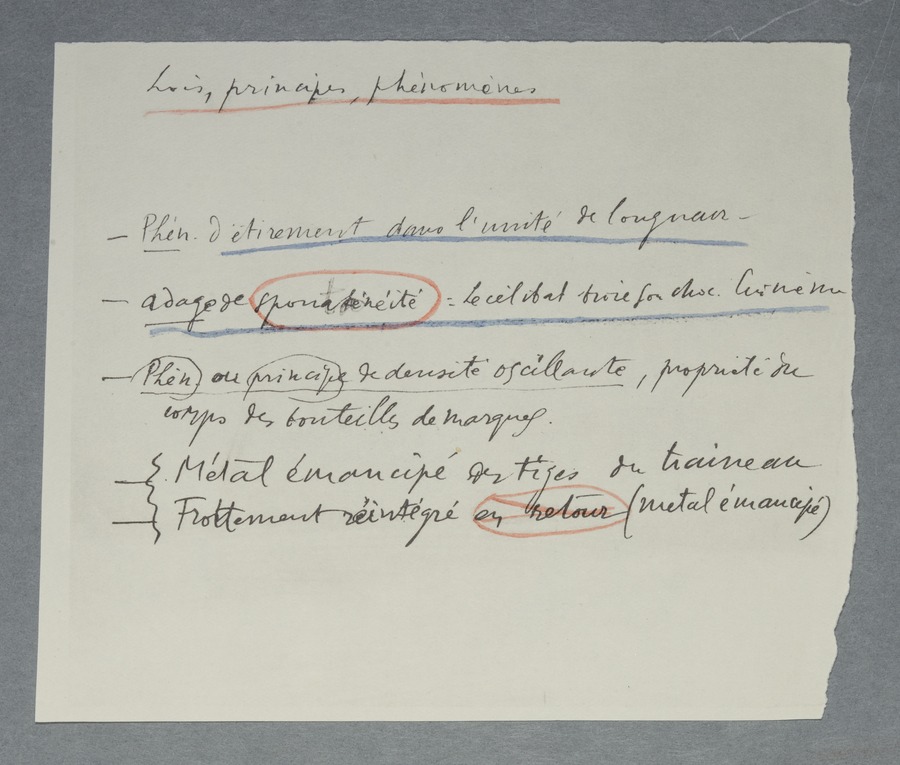 Lois, principes, phénomènes
— Phén. d'étirement dans l'unité de longueur —
— adage de spontanéité = le célibat. broie son choc. lui-même
— Phén) ou principe de densité oscillante, propriété du
corps des bouteilles de marques.
— { Métal émancipé des tiges du traineau
— { Frottement réintégré en retour (métal émancipé)